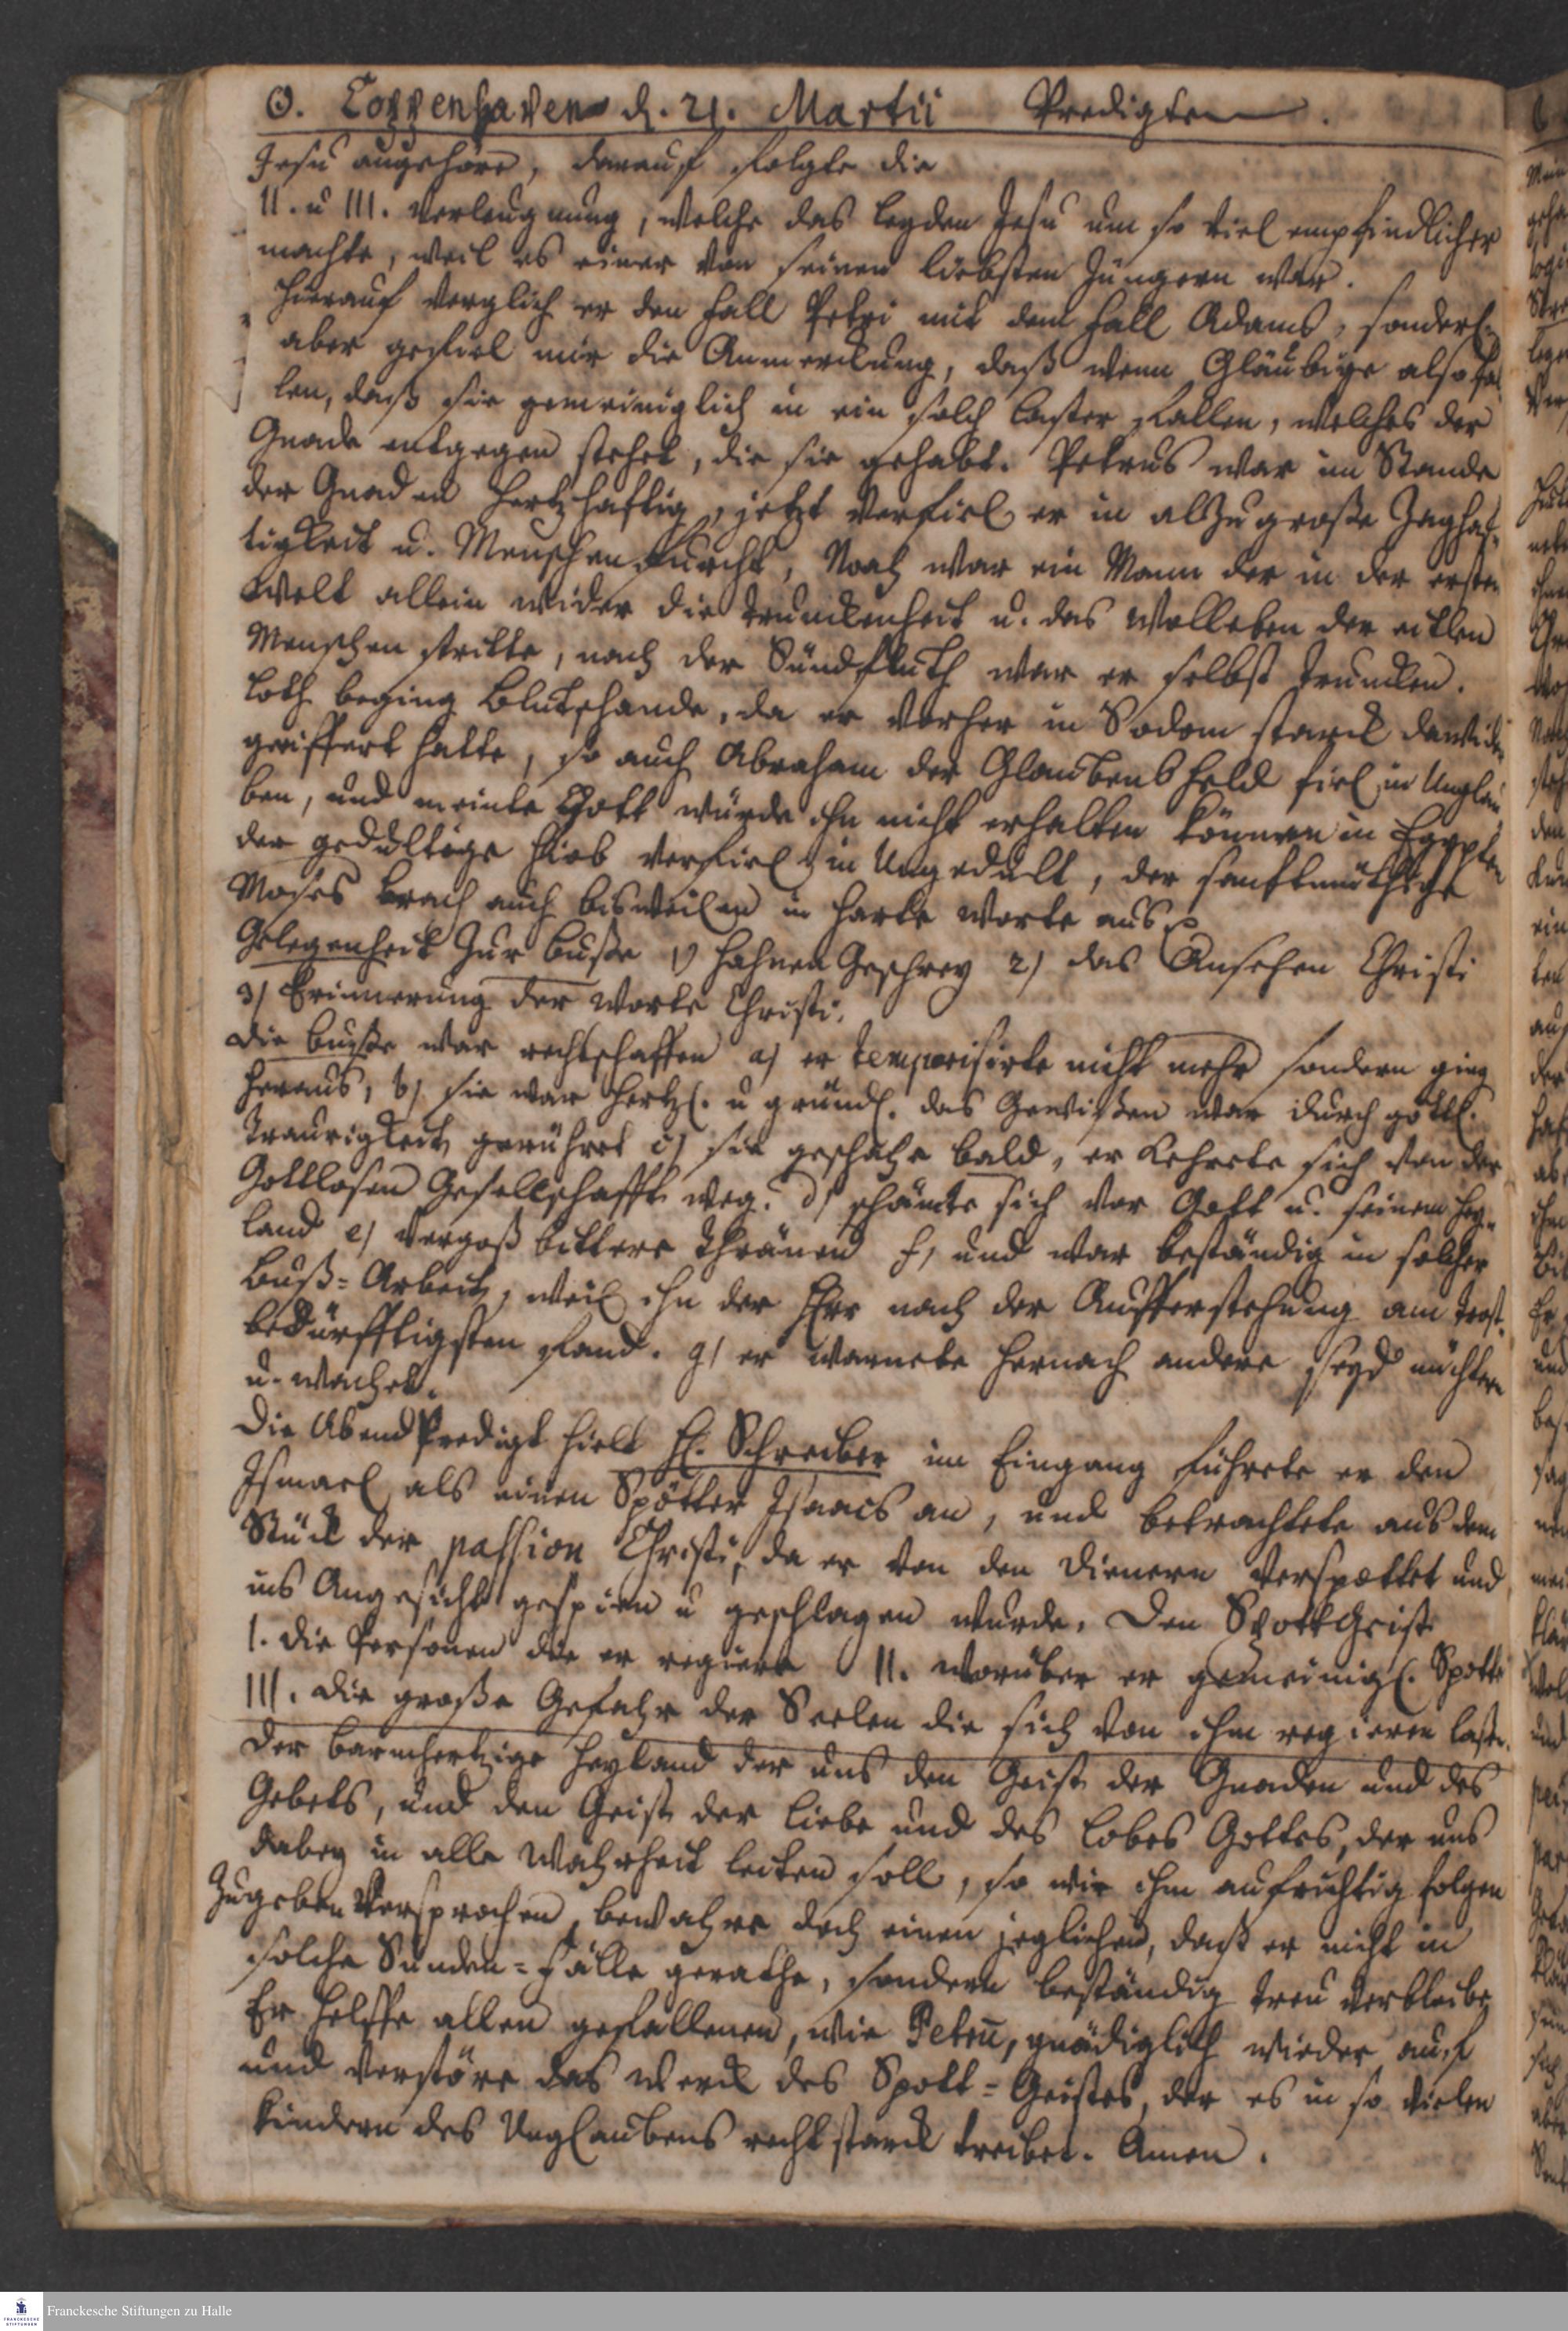 ☉. Coppenhaven d. 21. Martii Predigten.
Jesu angehöre, darauf folgte die
II. u III. Verleugnung, welche das Leyden Jesu um so viel empfindlicher
machte, weil es einer von seinen liebsten Jüngern war.
Hierauf verglich er den Fall Petri mit dem Fall Adams, sonderl.
aber gefiel mir die Anmerckung, daß wenn Gläubige also fal-
len, daß sie gemeiniglich in ein solch Laster fallen, welches der
Gnade entgegen stehet, die sie gehabt. Petrus war im Stande
der Gnaden hertzhafftig, jetzt verfiel er in alzu große Zaghaf-
tigkeit u. Menschenfurcht, Noah war ein Mann der in der ersten
Welt allein wider die Trunckenheit u. das Wolleben der eitlen
Menschen stritte, nach der Sündfluth war er selbst truncken.
Loth beging Blutschande, da er vorher in Sodom starck dawider
geeiffert hatte, so auch Abraham der Glaubens Held fiel in Unglau-
ben, und meinte Gott würde ihn nicht erhalten können in Egypten
der gedultige Hiob verfiel in Ungedult, der sanftmüthige
Moses brach auch bisweilen in harte Worte aus
Gelegenheit zur Buße 1) Hahnen Geschrey 2) das Ansehen Christi
3) Erinnerung der Worte Christi.
Die Buße war rechtschaffen a) er temporisirte nicht mehr sondern ging
heraus, b) sie war hertzl. u gründl. das Gewißen war durch göttl.
Traurigkeit gerühret c) sie geschahe bald, er kehrete sich von der
Gottlosen Gesellschafft weg. d) schämte sich vor Gott u. seinem Hey-
land e) vergoß bittere Thränen f) und war beständig in solcher
Buß-Arbeit, weil ihn der HErr nach der Aufferstehung am trost-
bedürfftigsten fand. g) er warnete hernach andere seyd nüchtern
u. wachet.
Die AbendPredigt hielt H. Schreiber im Eingang führete er den
Ismael als einen Spötter Isaacs an, und betrachtete aus dem
Stück der passion Christi, da er von den Dienern verspottet und
ins Angesicht gespien u geschlagen wurde. Den SpottGeist
I. die Personen die er regiere II. worüber er gemeinigl. Spotte
III. die große Gefahr der Seelen die sich von ihm regieren laßen.
Der barmhertzige Heyland der uns den Geist der Gnaden und des
Gebets, und den Geist der Liebe und des Lobes Gottes, der uns
dabey in alle Wahrheit leiten soll, so wir ihm aufrichtig folgen
zugeben Versprochen, bewahre doch einen jeglichen, daß er nicht in
solche Sünden-Fälle gerathe, sondern beständig treu verbleibe
Er helffe allen gefallenen, wie Petru, gnädiglich wieder auf
und verstöre das Werck des Spott-Geistes, der es in so vielen
Kindern des Unglaubens recht starck treibet. Amen.
Franckesche Stiftungen zu Halle